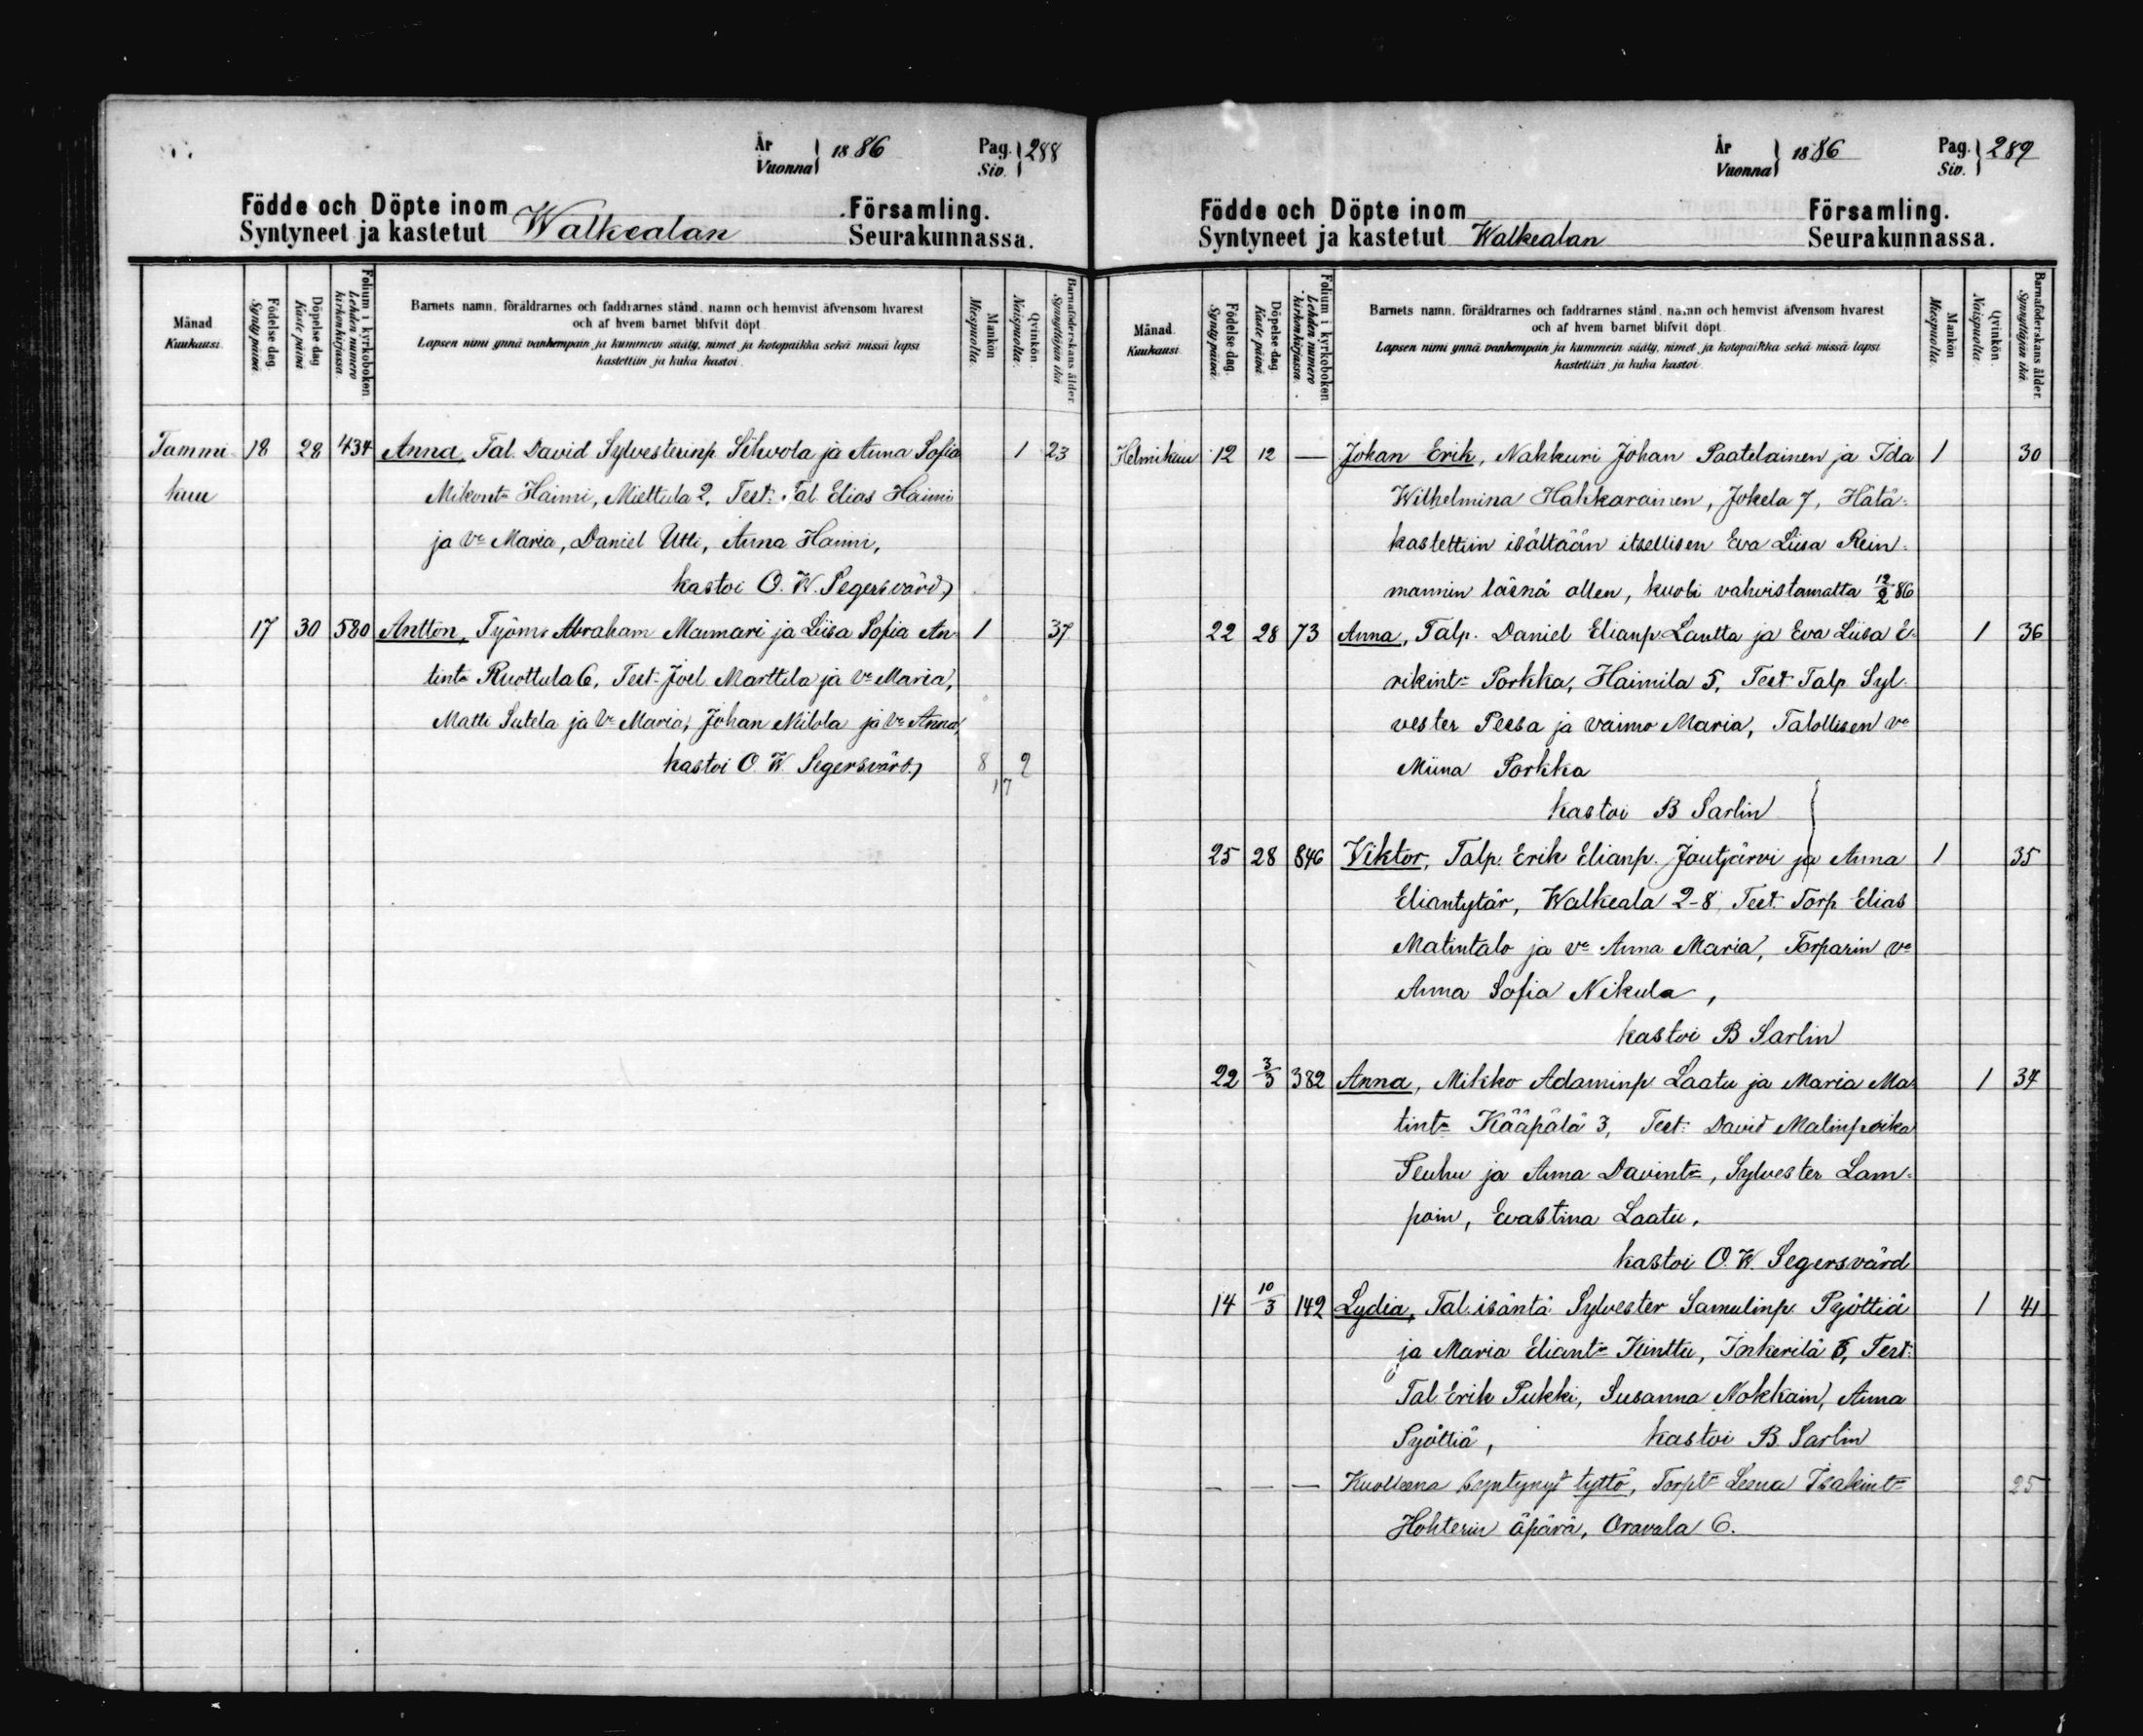 År
Vuonna 1886
Pag.
Siv. 288
Födde och Döpte inom Församling.
Syntyneet ja kastetut Walkealan Seurakunnassa.
Månad
Kuukausi.
Födelse dag.
Synty päivä.
Döpelse dag
Kaste päivä
Folium i kyrkoboken
Lehden numero kirkonkirjassa.
Barnets namn, föräldrarnes och faddrarnes stånd, namn och hemvist äfvensom hvarest
och af hvem barnet blifvit döpt.
Lapsen nimi ynnä vanhempain ja kummein sääty, nimet ja kotopaikka sekä missä lapsi
kastettiin ja kuka kastoi.
Mankön
Miespuolta.
Qvinkön.
Naispuolta.
Barnaföderskans ålder.
Synnyttäjän ikä.
Tammi- 18 28 434 Anna, Tal. David Sylvesterinp. Sihvola ja Anna Sofia 1 23
kuu Mikont= Haimi, Miettula 2, Test: Tal. Elias Haimi
ja Vo Maria, Daniel Utti, Anna Haimi,
kastoi O. W. Segersvärd,
17 30 580 Antton, Työms Abraham Mammari ja Liisa Sofia An- 1 37
tint= Ruottula 6, Test: Joel Marttila ja Vo Maria,
Matti Sutela ja Vo Maria, Johan Niilola ja Vo Anna,
kastoi O W Segersvärd, 8 9
17
År
Vuonna 1886
Pag.
Siv. 289
Födde och Döpte inom Församling.
Syntyneet ja kastetut Walkealan Seurakunnassa.
Månad
Kuukausi
Födelse dag.
Synty päivä.
Döpelse dag
Kaste päivä
Folium i kyrkoboken
Lehden numero kirkonkirjassa.
Barnets namn, föräldrarnes och faddrarnes stånd, namn och hemvist äfvensom hvarest
och af hvem barnet blifvit döpt.
Lapsen nimi ynnä vanhempain ja kummein sääty, nimet ja kotopaikka sekä missä lapsi
kastettiin ja kuka kastoi.
Mankön
Miespuolta.
Qvinkön.
Naispuolta.
Barnaföderskans ålder.
Synnyttäjän ikä.
Helmikuu 12 12 — Johan Erik, Nahkuri Johan Paatelainen ja Ida 1 30
Wilhelmina Hahkarainen, Jokela 7, Hätä-
kastettiin isältään itsellisen Eva Liisa Rein-
mannin läsnä ollen, kuoli vahvistamatta 12/2 86
22 28 73 Anna, Talp. Daniel Elianp. Lautta ja Eva Liisa E- 1 36
rikint= Porkka, Haimila 5, Test: Talp. Syl-
vester Peesa ja vaimo Maria, Talollisen vo
Miina Porkka
kastoi B Sarlin
25 28 846 Viktor, Talp. Erik Elianp. Jautjärvi ja Anna 1 35
Eliantytär, Walkeala 2-8, Test: Torp Elias
Matintalo ja vo Anna Maria, Torparin vo
Anna Sofia Nikula,
kastoi B Sarlin
22 3/3 382 Anna, Mikko Adaminp. Laatu ja Maria Ma- 1 34
tint= Kääpälä 3, Test: David Matinpoika
Peuhu ja Anna Davint=, Sylvester Lam-
pain, Evastina Laatu,
kastoi O. W. Segersvärd
14 10/3 142 Lydia, Tal. isäntä Sylvester Samulinp. Pyöttiä 1 41
ja Maria Eliant= Kinttu, Inkerilä 5, Test:
Tal Erik Pukki, Susanna Nokkain, Anna
Pyöttiä, kastoi B. Sarlin
— — — Kuolleena syntynyt tyttö, Torpt= Leena Isakint= 25
Hohterin äpärä, Oravala 6.